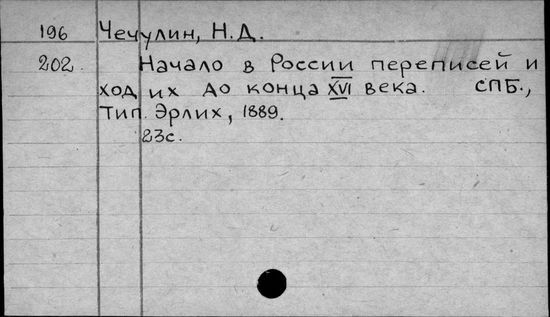 196 Чечулин, Н.Д.
202. Начало в России переписей и
ход их до конца XVI века. СПБ.,
Тип. Эрлих, 1889.
23с.